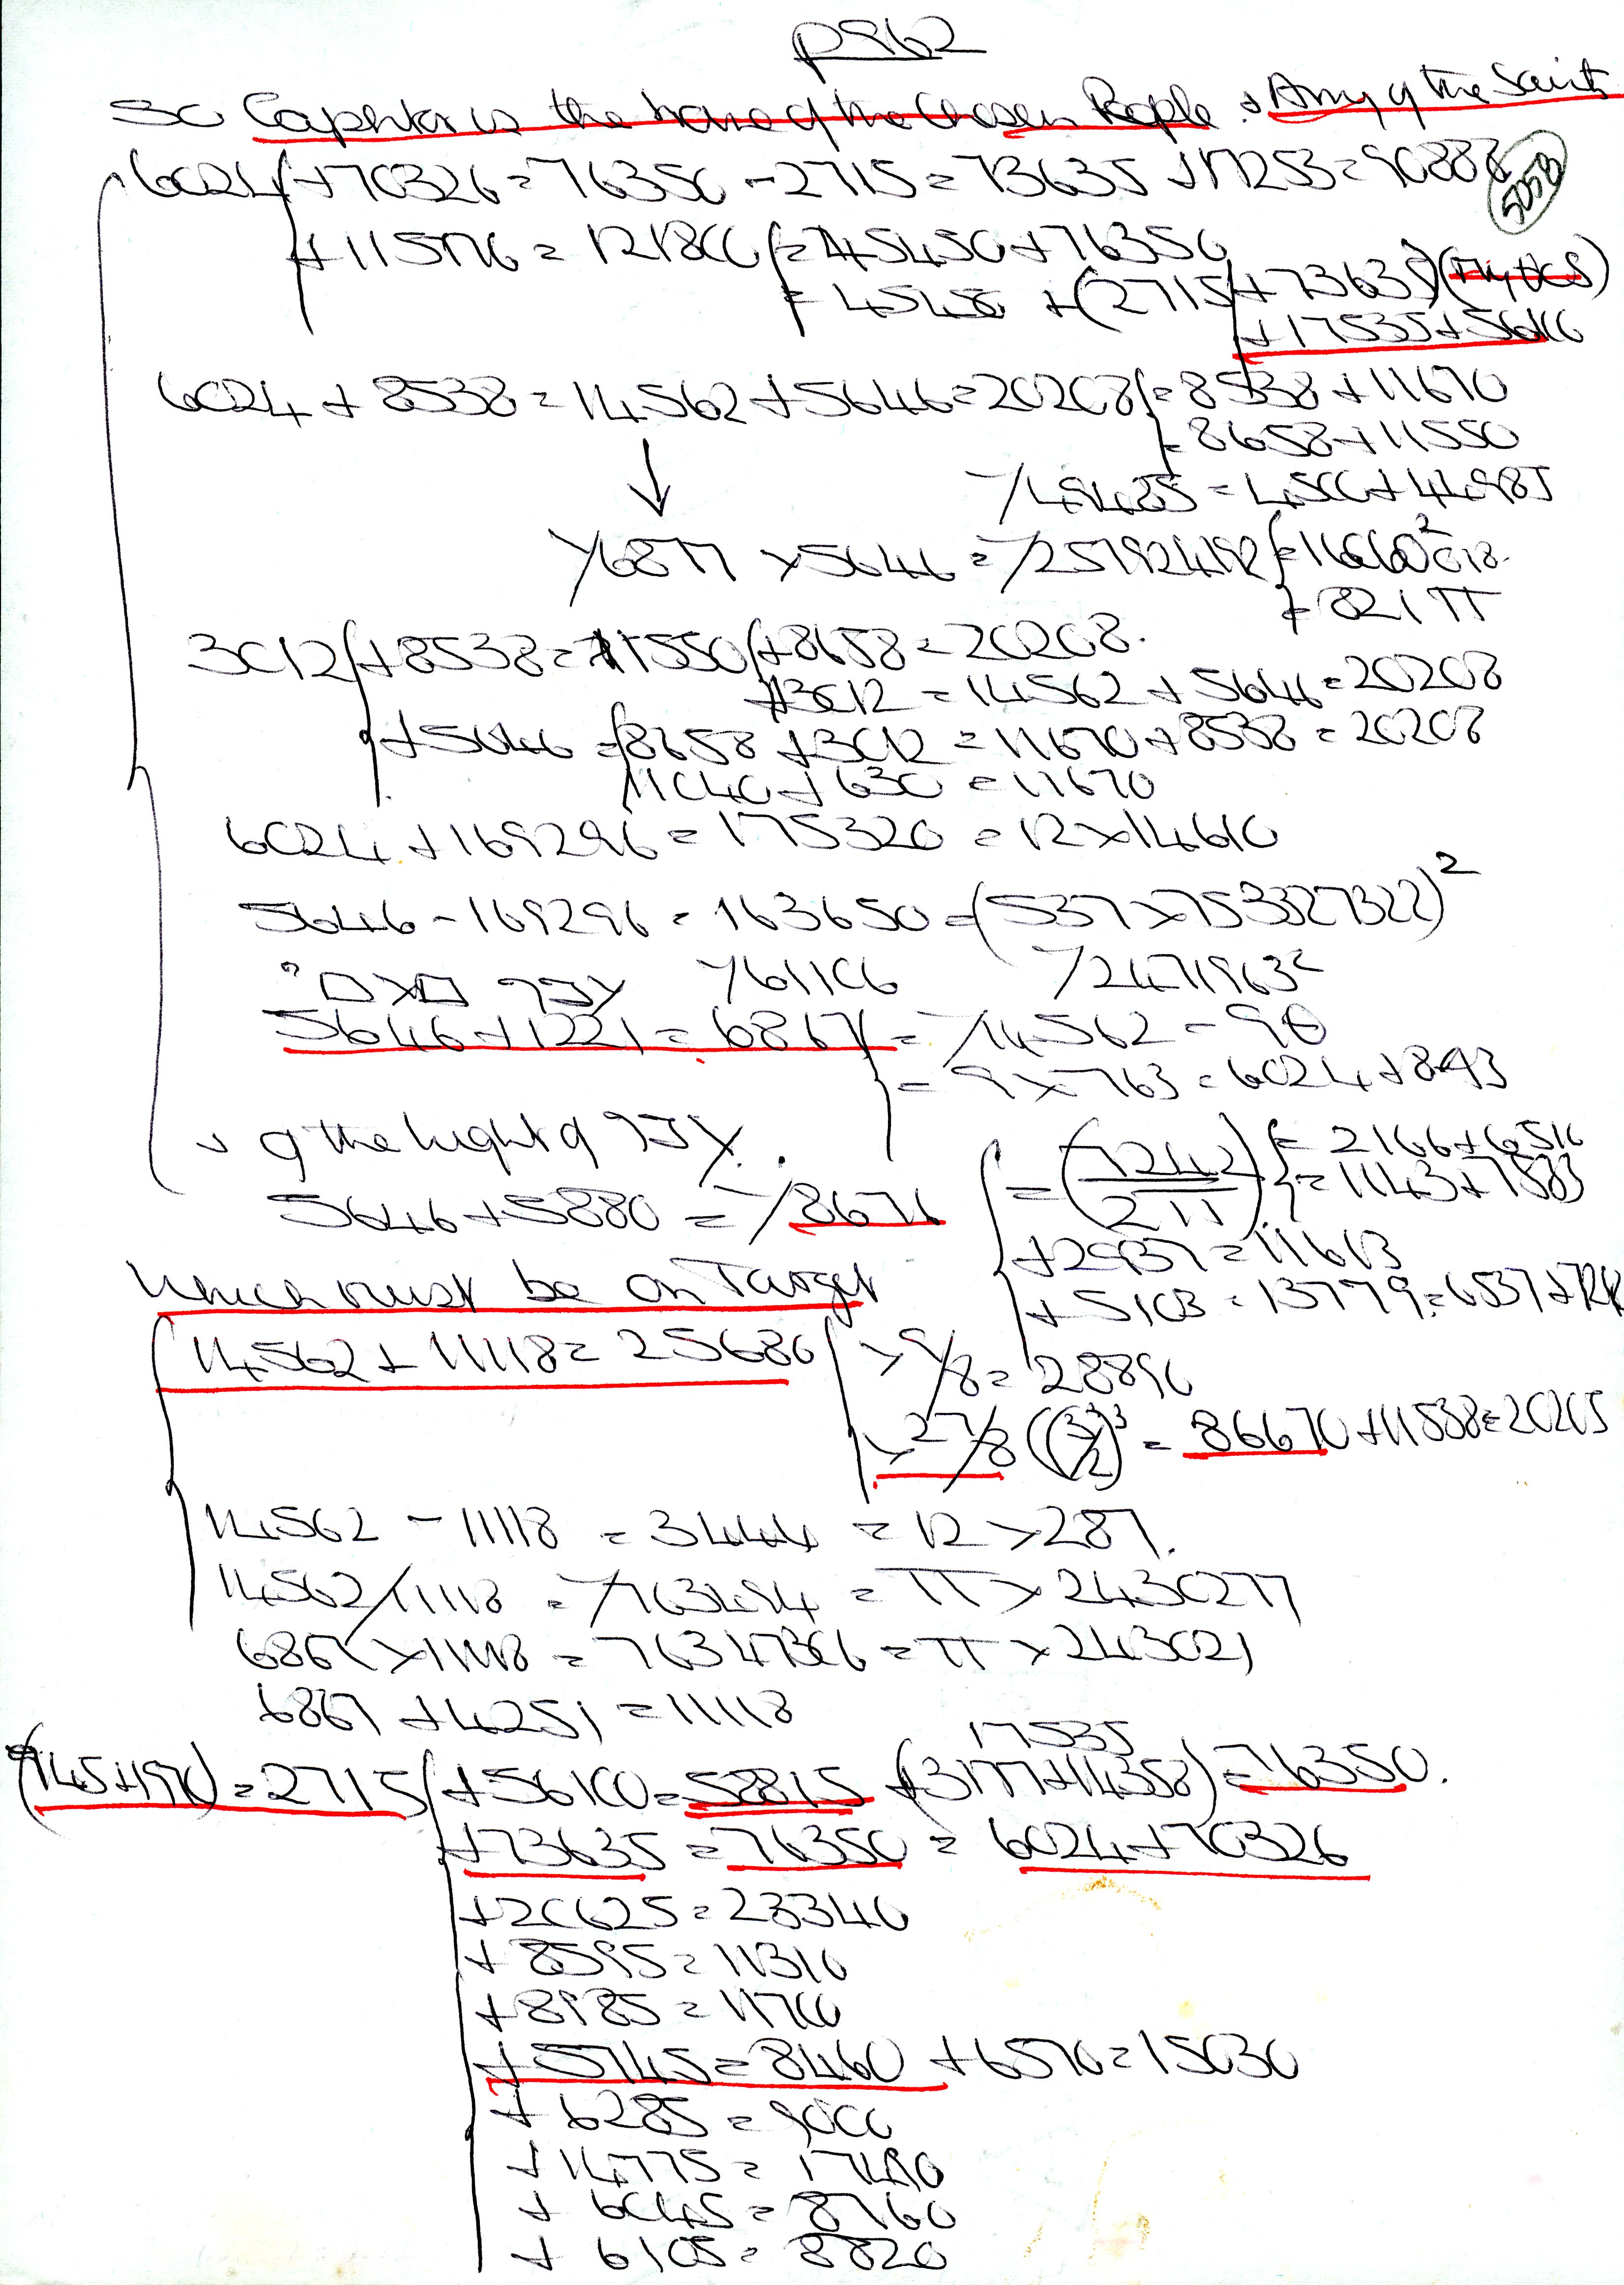 p962
So Caphtor is the home of the Chosen People + Army of the Saints
6024 +70326=76350 -2715=73635 +17253=90888
5058
+115776=121800 =45450+76350
=45450 +(2715 +73635)
+17535+56100
6024 + 8538=14562+5646=20208 =8538+11670
=8658+11550
/49485=4500+44985
↓
/6877 x5646 =
=821π
3012 +8538=11550 +8658=20208.
+3012=14562+5646=20208
+5646 =8658 +3012=11670+8538=20208
11040+630=11670
6024+169296=175320=12x14610
5646-169296=163650=(537x753327322)²
/61106 /2471963²
5646+1221=6867 =/14562 -90
=9x763=6024+843
5646+5880=/8676
=(7242/2π)
=1143+7533
+2937=11613
+5103=13779=6537+7242
Which must be on Target
14562+11118=25680 x9/8=28890
x27/8 ((3/2)³)=86670+11538=20205
14562-11118=3444=12x287.
14562/11118=/763494=πx2430277
6867x11118=76347306=πx243021
6867+4251=11118
17535
(745+1970)=2715 +56100=58815 +(3177+14358)=76350.
+73635=76350=6024+70326
+20625=23340
+8595=11310
+8985=11700
+5745=8460 +6570=15030
+6285=9000
+14775=17490
+6045=8760
+6105=8820